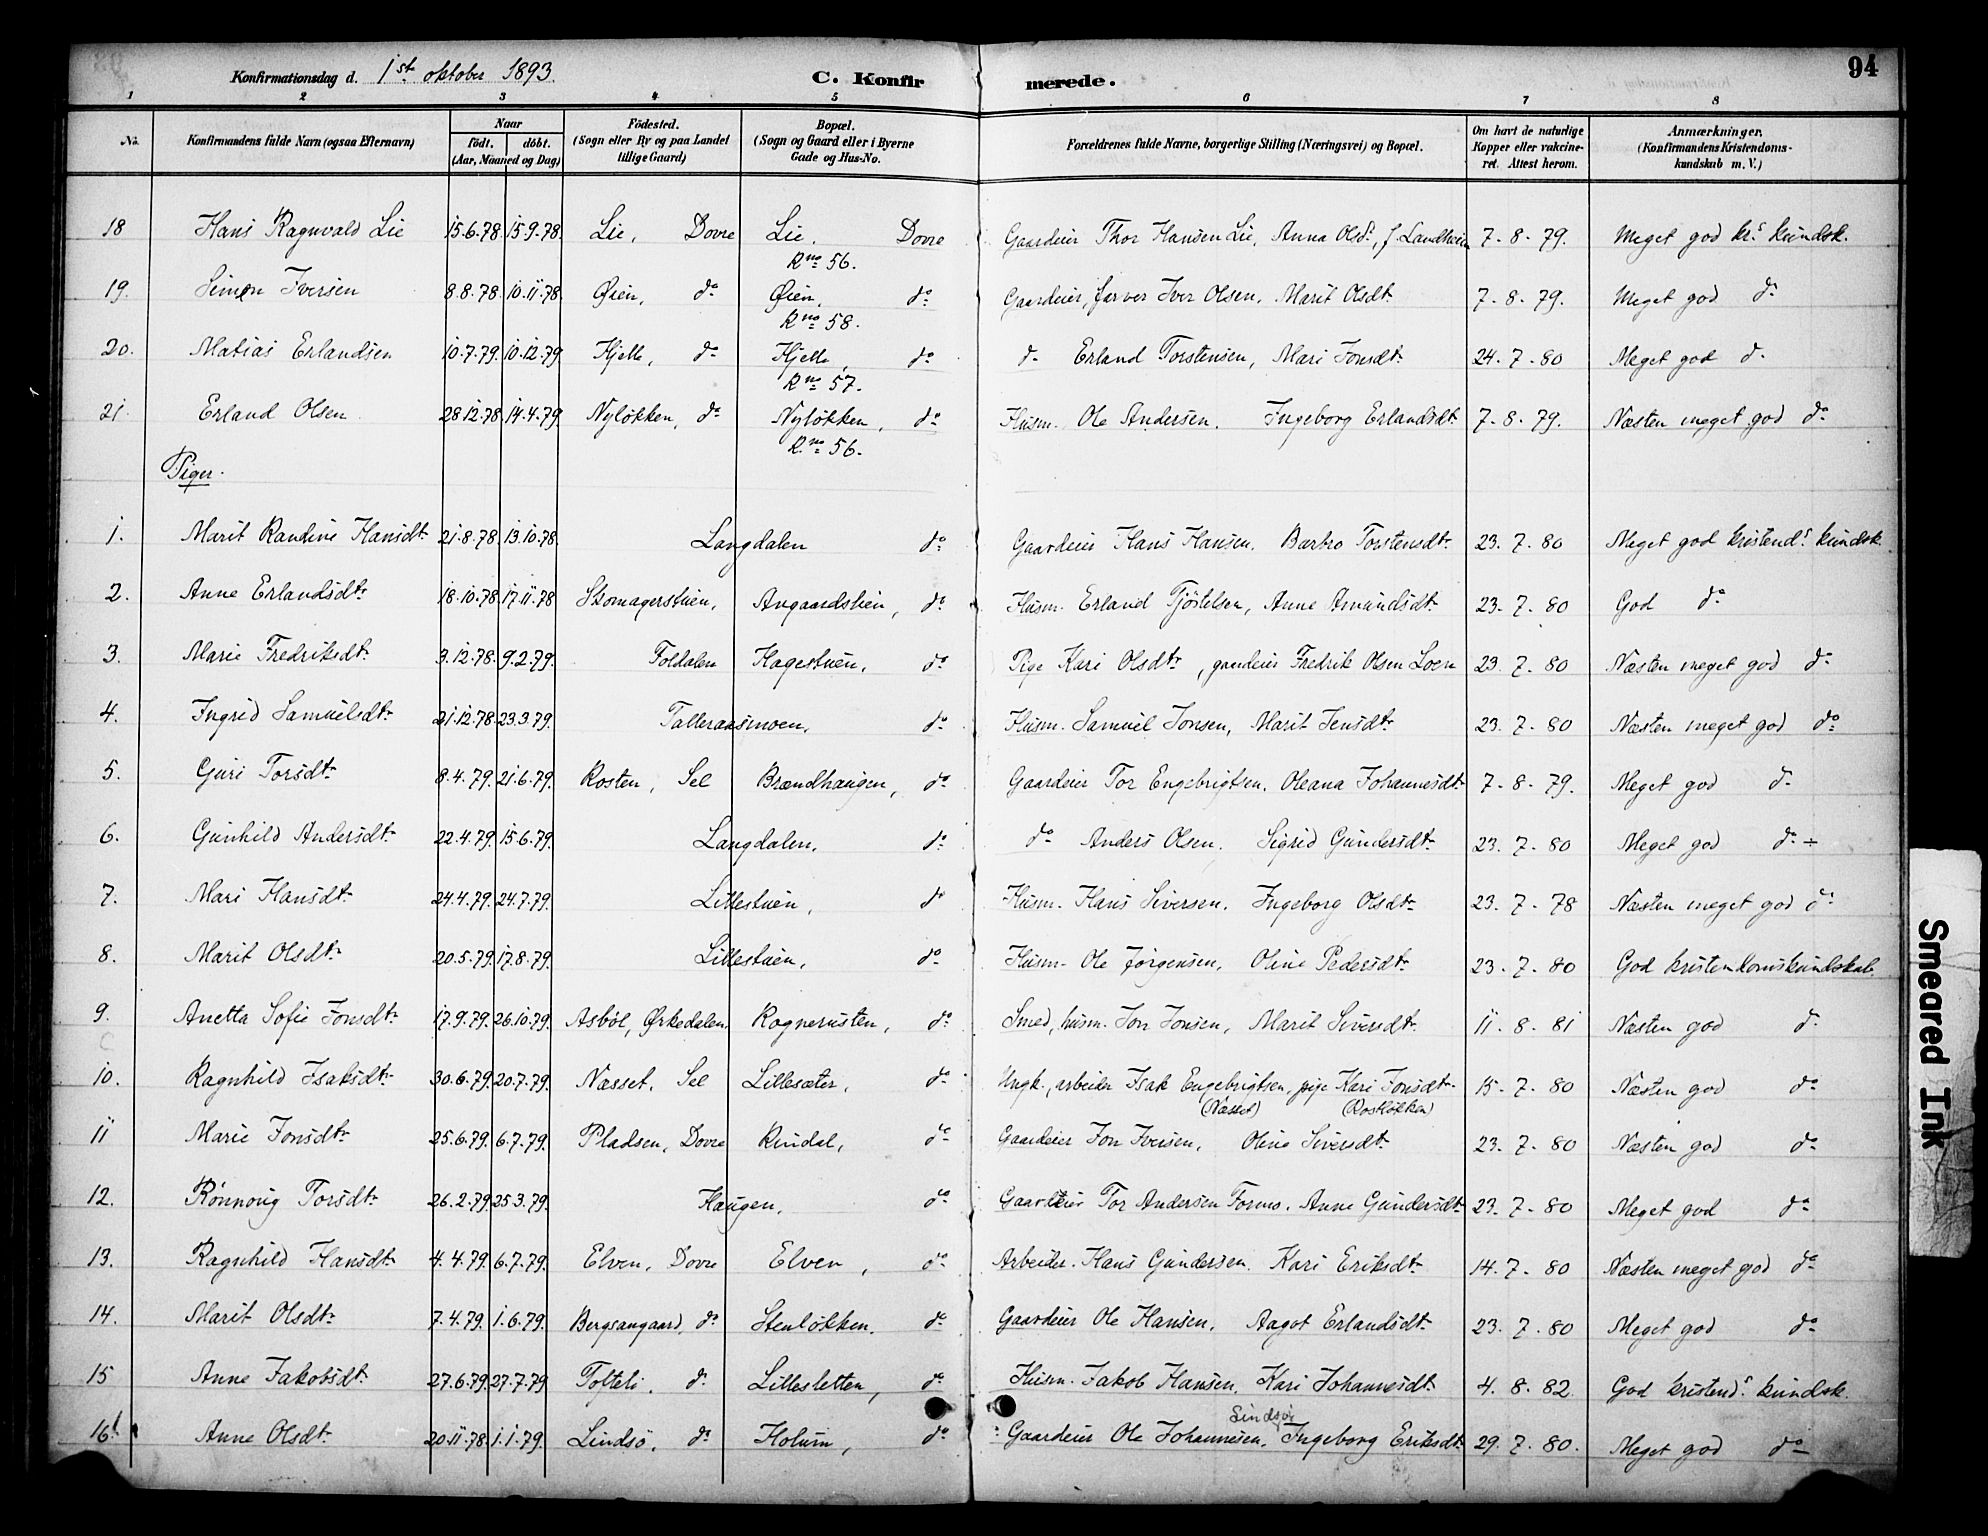 Konfirmationsdag d. 1ste oktober 1893. C. Konfirmerede. 94
1 2 3 4 5 6 7 8
No. Konfirmandens fulde Navn (ogsaa Efternavn) Naar født. døbt. (Aar, Maaned og Dag) Fødested. (Sogn eller By og paa Landet tillige Gaard) Bopæl. (Sogn og Gaard eller i Byerne Gade og Hus-No. Forældrenes fulde Navne, borgerlige Stilling (Næringsvei) og Bopæl. Om havt de naturlige Kopper eller vakcineret. Attest herom. Anmærkninger. (Konfirmandens Kristendomskundskab m. V.)
18 Hans Ragnvald Lie 15.6.78. 15.9.78. Lie, Dovre Lie, Dovre Gaardeier Thor Hansen Lie, Anna Olsd., f. Landheim 7-8-79. Meget god kr. kundsk.
R no 56.
19. Simen Iversen 8.8.78 10.11.78 Øien, do Øien, do Gaardeier, farver Iver Olsen, Marit Olsdtr 7-8-79. Meget god do
R no 58.
20. Matias Erlandsen 10.7.79. 10.12.79. Hjelle, do Hjelle, do do Erland Torstensen, Mari Jonsdtr 24.7-80 Meget god do
R no 57.
21. Erland Olsen 28.12.78 14.4.79. Nyløkken, do Nyløkken, do Husm. Ole Andersen, Ingeborg Erlandsdtr 7-8-79. Næsten meget god do
R. no 56.
Piger.
1. Marit Randine Hansdtr 21.8.78. 13.10.78. Langdalen do Gaardeier Hans Hansen, Barbro Torstensdtr 23.7-80 Meget god kristend. kundsk.
2. Anne Erlandsdtr 18.10.78 17.11.78 Skomagerstuen, Angaardstuen, do Husm. Erland Tjøstelsen, Anne Amundsdtr 23.7-80 God do
3. Marie Fredriksdtr 3.12.78. 9.2.79. Foldalen Hagestuen, do Pige Kari Olsdtr, gaardeier Fredrik Olsen Loen 23.7-80 Næsten meget god do
4. Ingrid Samuelsdtr 21.12.78. 23.3.79. Talleraasmoen, do Husm. Samuel Jonsen, Marit Jensdtr 23.7-80 Næsten meget god do
5. Guri Torsdtr 8.4.79. 21.6.79. Rosten, Sel Brændhaugen, do Gaardeier Tor Engebrigtsen, Oleana Johannesdtr 7-8-79. Meget god do
6. Gunhild Andersdtr 22.4.79. 15.6.79. Langdalen, do do Anders Olsen, Sigrid Gundersdtr 23.7-80 Meget god do
7. Mari Hansdtr 24.4.79. 24.7.79. Lillestuen, do Husm. Hans Siversen, Ingeborg Olsdtr 23.7-78 Næsten meget god do
8. Marit Olsdtr 20.5.79. 17.8.79. Lillestuen, do Husm. Ole Jørgensen, Oline Pedersdtr 23.7-80 God kristendomskundskab
9. Anetta Sofie Jonsdtr 17.9.79. 26.10.79. Asbøl, Ørkedalen Rognerusten, do Smed, husm. Jon Jonsen, Marit Siversdtr 11-8-81 Næsten god do
10. Ragnhild Isaksdtr 30.6.79. 20.7.79. Næsset, Sel Lillesæter, do Ungk., arbeider Isak Engebrigtsen, pige Kari Jonsdtr 15-7-80 Næsten god do
(Næsset) (Rosløkken)
11 Marie Jonsdtr 25.6.79. 6.7.79. Pladsen, Dovre Rindal, do Gaardeier Jon Iversen, Oline Siversdtr 23.7-80 Næsten god do
12. Rønnoug Torsdtr 26.2.79. 25.3.79. Haugen, do Gaardeier Tor Andersen Formo. Anne Gundersdtr 23.7-80 Meget god do
13. Ragnhild Hansdtr 4.4.79. 6.7.79. Elven, Dovre Elven, do Arbeider. Hans Gundersen. Kari Eriksdtr 14.7-80 Næsten meget god do
14. Marit Olsdtr 7.4.79. 1.6.79. Bergsangaard, do Stenløkken, do Gaardeier Ole Hansen, Aagot Erlandsdtr 23.7-80 Meget god do
15 Anne Jakobsdtr 27.6.79. 27.7.79 Tofteli, do Lillesletten, do Husm. Jakob Hansen, Kari Johannesdtr 4.8.82. God kristend. kundsk.
Lindsø
16. Anne Olsdtr 20.11.78. 1.1.79. Lindsø, do Holum, do Gaardeier Ole Johannesen, Ingeborg Eriksdtr 29.7.80. Meget god do
Smeared Ink